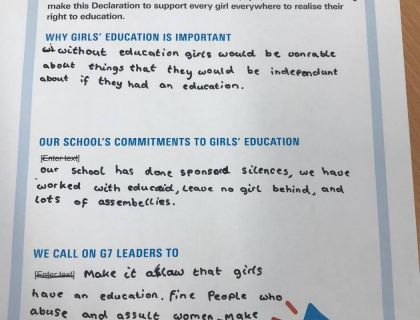 make this Declaration to support every girl everywhere to realise their
right to education.
WHY GIRLS' EDUCATION IS IMPORTANT
without education girls would be vonrable
about things that they would be independunt
about if they had an education.
OUR SCHOOL'S COMMITMENTS TO GIRLS' EDUCATION
[Enter text]
our school has done sponserd silences, we have
worked with educaid, leave no girl behind, and
lots of assembellies.
WE CALL ON G7 LEADERS TO
[Enter text] Make it a law that girls
have an education. Fine People who
abuse and assult women. Make